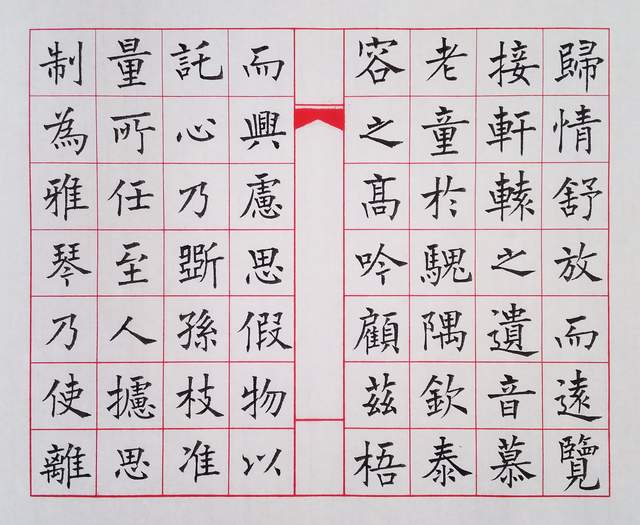 歸情舒放而遠覽
接軒轅之遺音慕
老童於騩隅欽泰
容之髙吟顧茲梧
而興慮思假物以
託心乃斲孫枝准
量所任至人攄思
制為雅琴乃使離